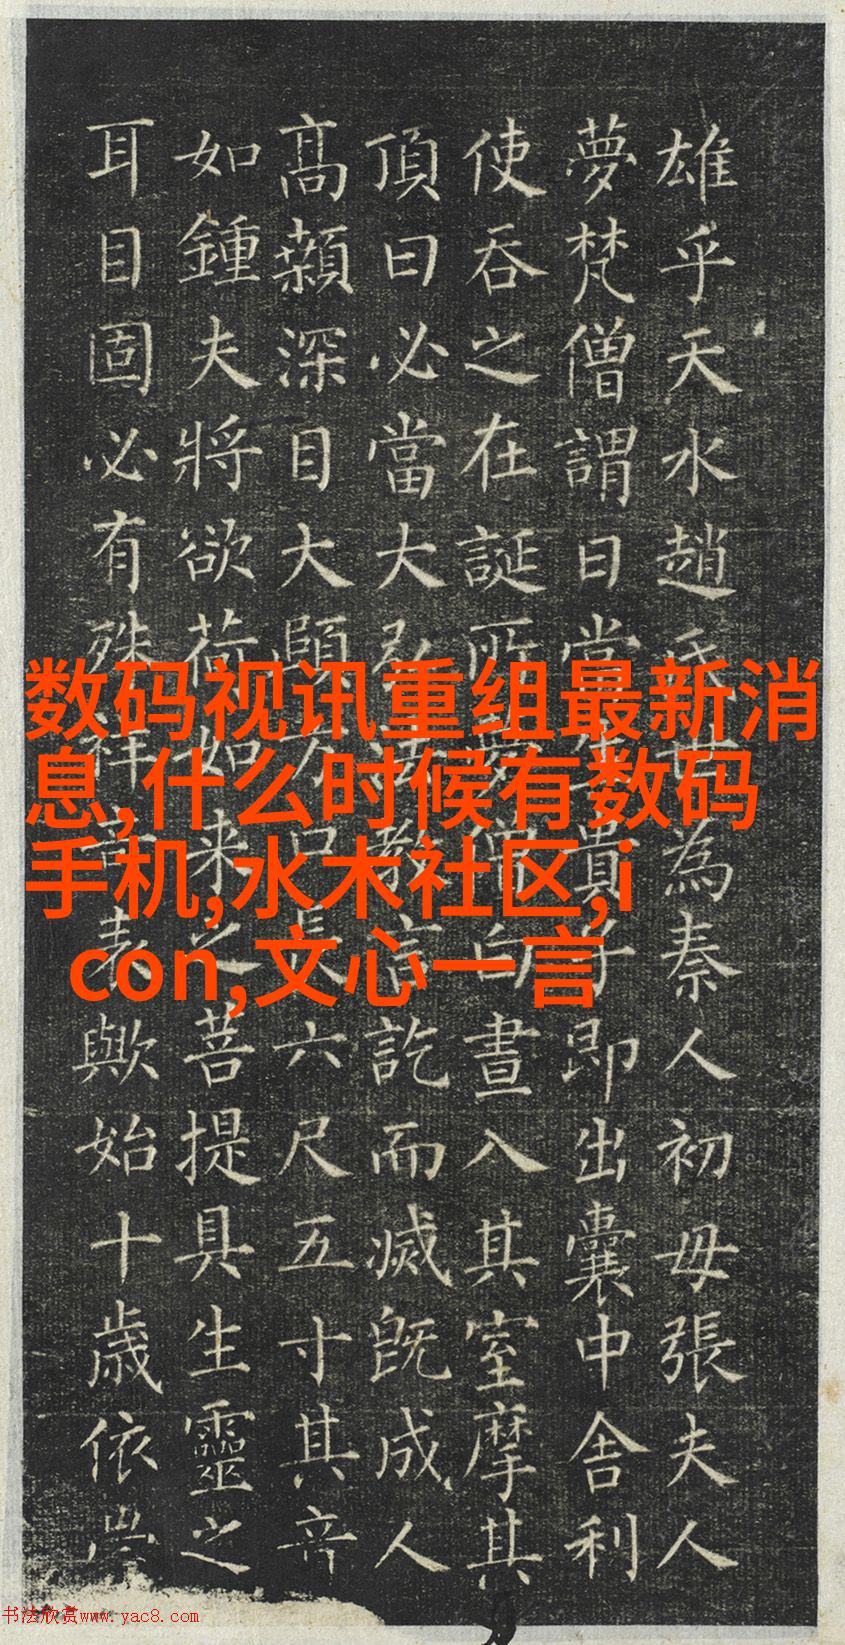 雄乎天水趙氏世為秦人初母張夫人
夢梵僧謂曰當生貴子即出囊中舍利
使吞之在誕所夢僧白晝入其室摩其
頂曰必當大弘法教言訖而滅既成人
高顙深目大頤方口長六尺五寸其音
如鍾夫將欲荷如來之菩提具生靈之
耳目固必有殊祥奇表歟始十歲依
数码视讯重组最新消
息,什么时候有数码
手机,水木社区,i
con,文心一言
书法欣赏www.yac8.com